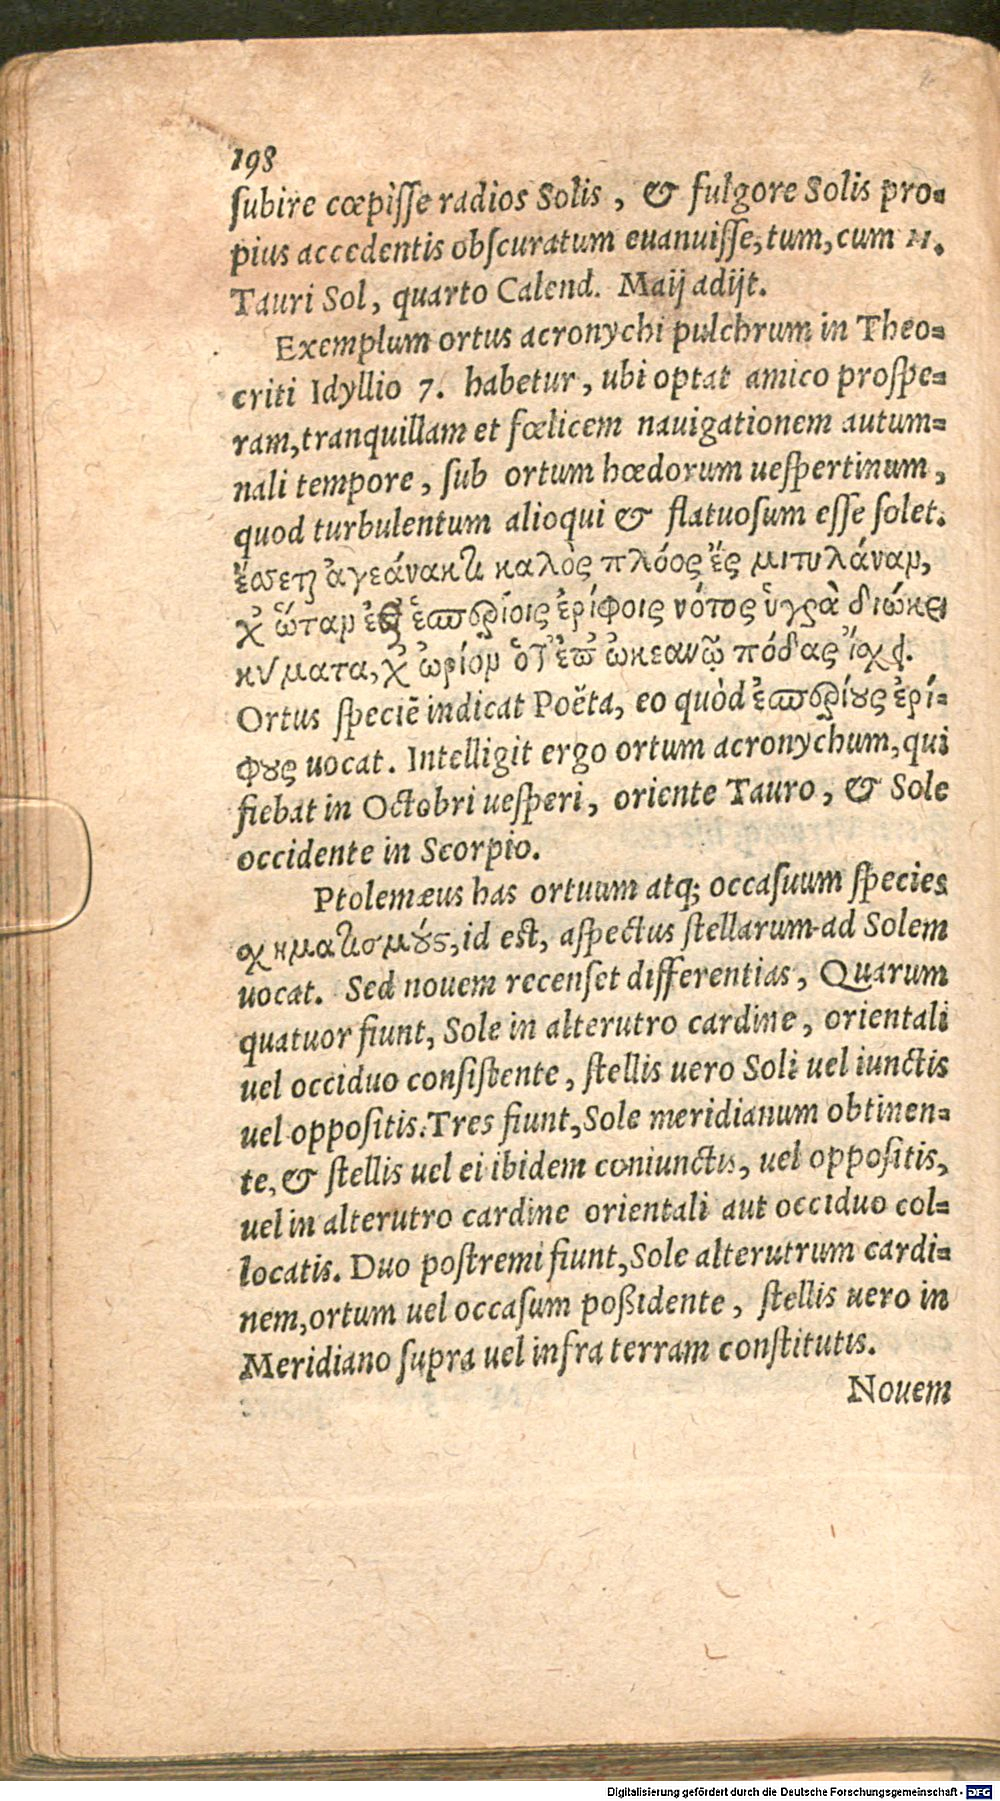 198
subire cœpisse radios Solis, & fulgore Solis pro-
pius accedentis obscuratum euanuisse, tum, cum 11.
Tauri Sol, quarto Calend. Maij adijt.
Exemplum ortus acronychi pulchrum in Theo-
criti Idyllio 7. habetur, ubi optat amico prospe-
ram, tranquillam et fœlicem nauigationem autum-
nali tempore, sub ortum hœdorum uespertinum,
quod turbulentum alioqui & flatuosum esse solet.
ἔσσεται ἀγεάνακτι καλὸς πλόος ἔς μιτυλάναν,
χ᾽ ὥταν ἐφ᾽ ἑσπερίοις ἐρίφοις νότος ὑγρὰ διώκει
κύματα, χ᾽ ὠρίων ὅτ᾽ ἐπ᾽ ὠκεανῷ πόδας ἴσχει.
Ortus speciẽ indicat Poëta, eo quòd ἑσπερίους ἐρί-
φους uocat. Intelligit ergo ortum acronychum, qui
fiebat in Octobri uesperi, oriente Tauro, & Sole
occidente in Scorpio.
Ptolemæus has ortuum atq; occasuum species
σχηματισμούς, id est, aspectus stellarum ad Solem
uocat. Sed nouem recenset differentias, Quarum
quatuor fiunt, Sole in alterutro cardine, orientali
uel occiduo consistente, stellis uero Soli uel iunctis
uel oppositis. Tres fiunt, Sole meridianum obtinen-
te, & stellis uel ei ibidem coniunctis, uel oppositis,
uel in alterutro cardine orientali aut occiduo col-
locatis. Duo postremi fiunt, Sole alterutrum cardi-
nem, ortum uel occasum poßidente, stellis uero in
Meridiano supra uel infra terram constitutis.
Nouem
Digitalisierung gefördert durch die Deutsche Forschungsgemeinschaft - DFG